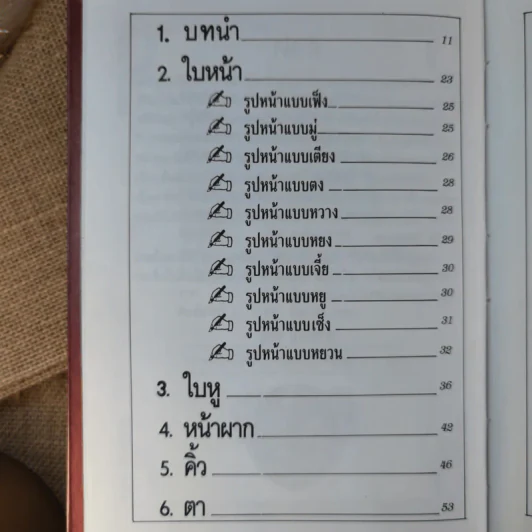 1. บทนำ 11
2. ใบหน้า 23
รูปหน้าแบบเฟิ่ง 25
รูปหน้าแบบมู่ 25
รูปหน้าแบบเตียง 26
รูปหน้าแบบตง 28
รูปหน้าแบบหวาง 28
รูปหน้าแบบหยง 29
รูปหน้าแบบเจี้ย 30
รูปหน้าแบบหยู 30
รูปหน้าแบบเซ็ง 31
รูปหน้าแบบหยวน 32
3. ใบหู 36
4. หน้าผาก 42
5. คิ้ว 46
6. ตา 53